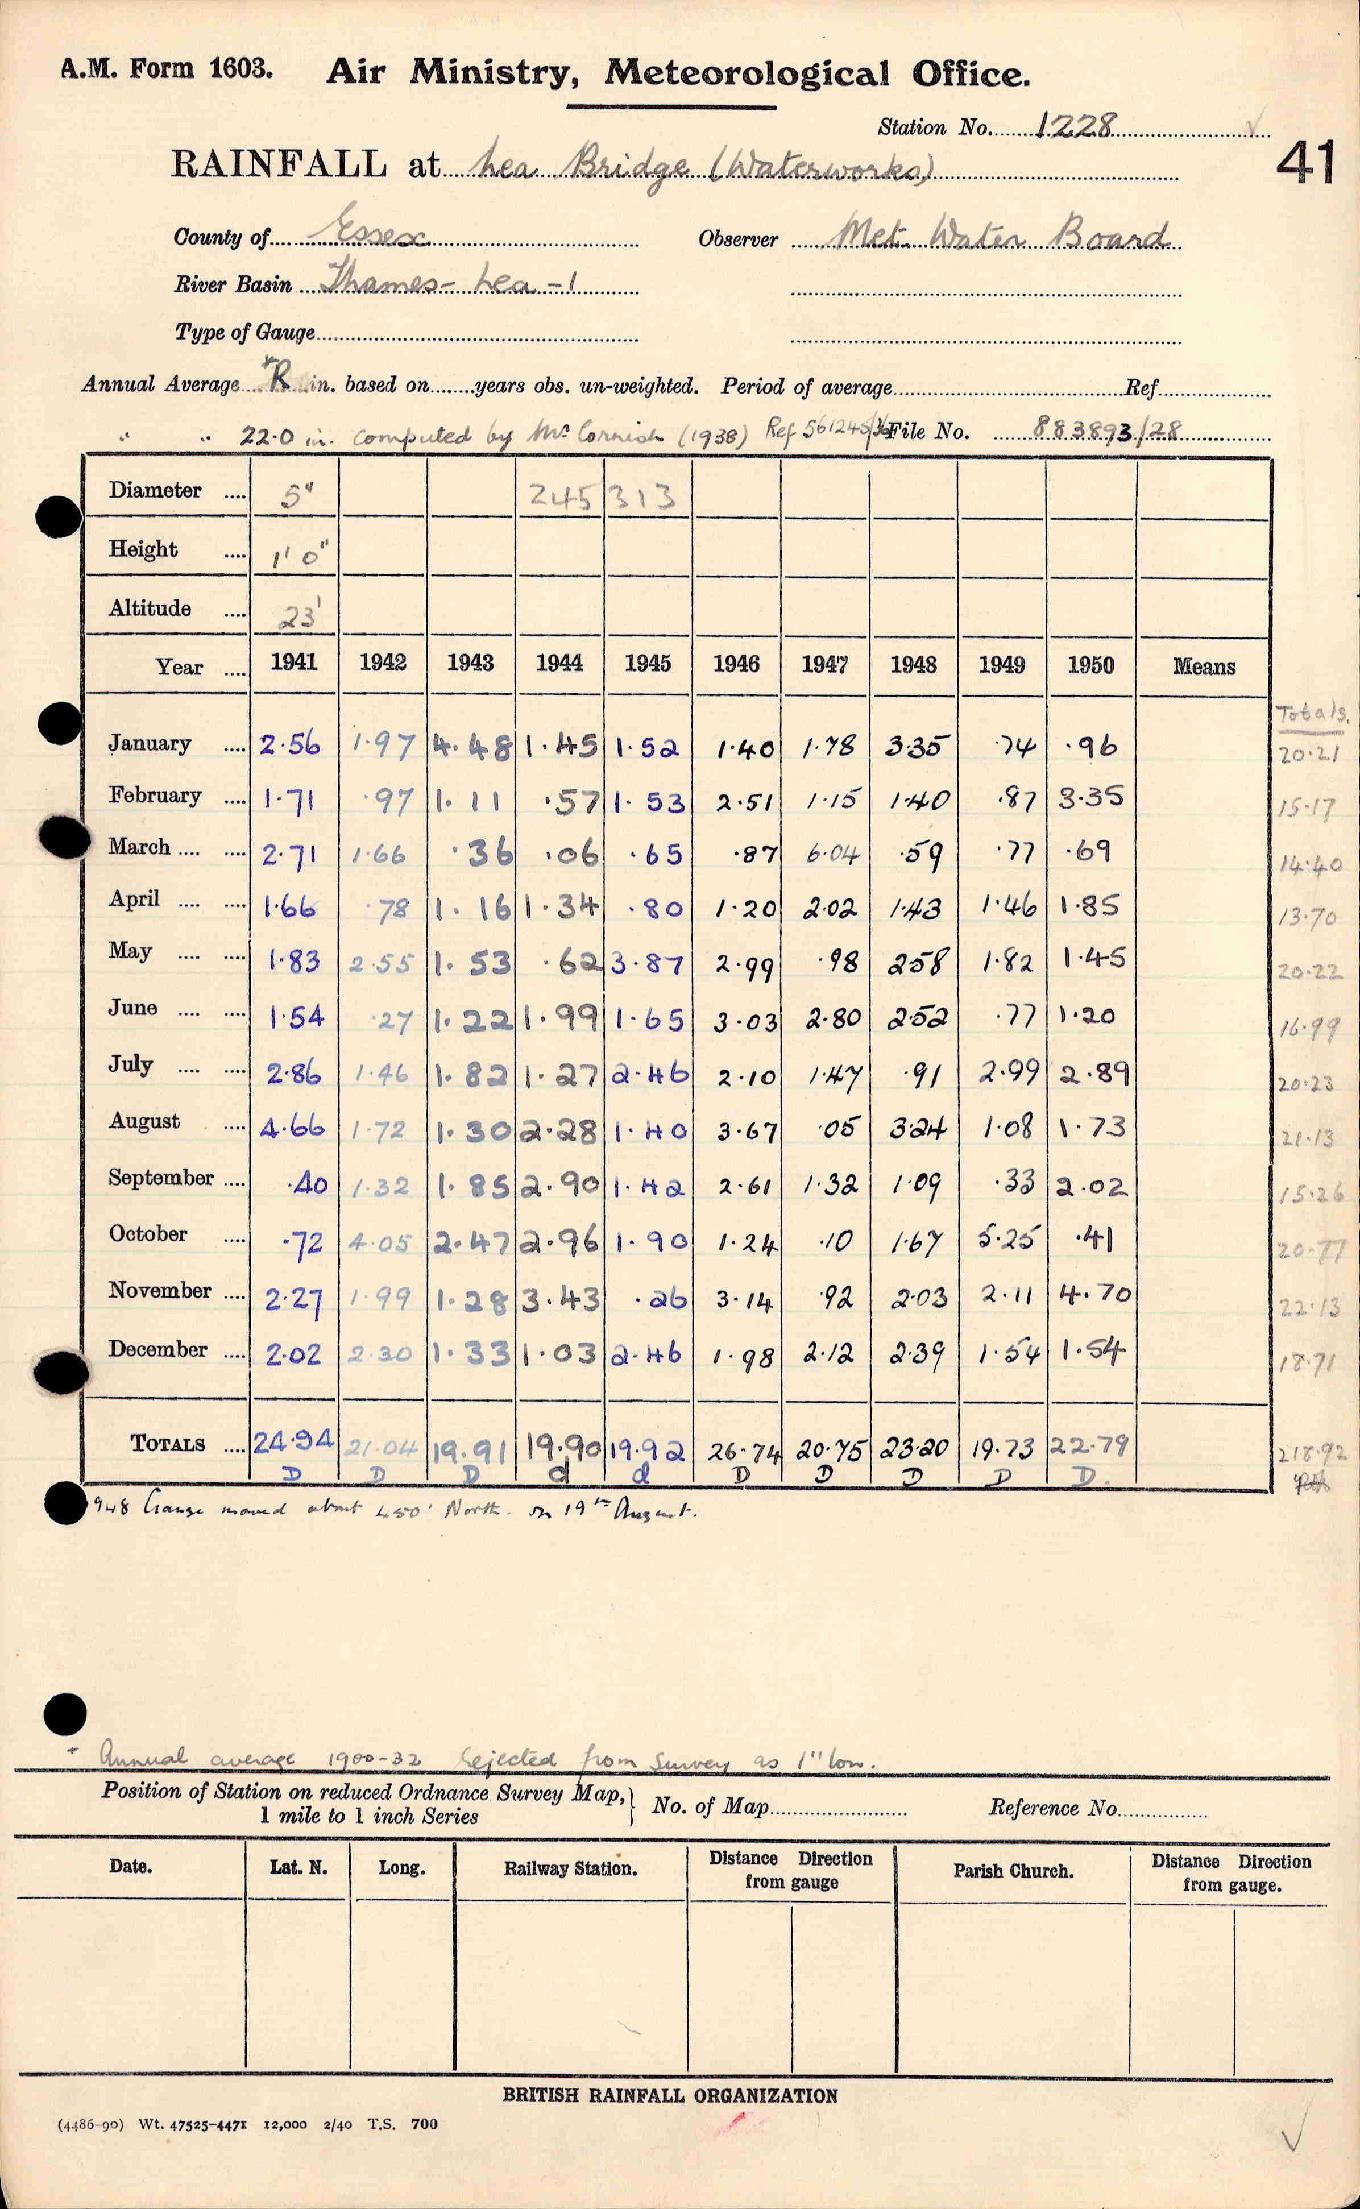 A.M. Form 1603. Air Ministry, Meteorological Office.
Station No. 1228
41
RAINFALL at Lea Bridge (Waterworks)
County of Essex Observer Met. Water Board
River Basin Thames - Lea - 1
Type of Gauge
Annual Average *R in. based on years obs. un-weighted. Period of average Ref
" " 22.0 in. computed by Mr Cornish (1938) Ref 561245/36 File No. 883893/28
Diameter 5" 245 313
Height 1' 0"
Altitude 23'
Year 1941 1942 1943 1944 1945 1946 1947 1948 1949 1950 Means
Totals.
January 2.56 1.97 4.48 1.45 1.52 1.40 1.78 3.35 .74 .96 20.21
February 1.71 .97 1.11 .57 1.53 2.51 1.15 1.40 .87 3.35 15.17
March 2.71 1.66 .36 .06 .65 .87 6.04 .59 .77 .69 14.40
April 1.66 .78 1.16 1.34 .80 1.20 2.02 1.43 1.46 1.85 13.70
May 1.83 2.55 1.53 .62 3.87 2.99 .98 2.58 1.82 1.45 20.22
June 1.54 .27 1.22 1.99 1.65 3.03 2.80 2.52 .77 1.20 16.99
July 2.86 1.46 1.82 1.27 2.46 2.10 1.47 .91 2.99 2.89 20.23
August 4.66 1.72 1.30 2.28 1.40 3.67 .05 3.24 1.08 1.73 21.13
September .40 1.32 1.85 2.90 1.42 2.61 1.32 1.09 .33 2.02 15.26
October .72 4.05 2.47 2.96 1.90 1.24 .10 1.67 5.25 .41 20.77
November 2.27 1.99 1.28 3.43 .26 3.14 .92 2.03 2.11 4.70 22.13
December 2.02 2.30 1.33 1.03 2.46 1.98 2.12 2.39 1.54 1.54 18.71
TOTALS 24.94 21.04 19.91 19.90 19.92 26.74 20.75 23.20 19.73 22.79 218.92
D D D d d D D D D D.
1948 Gauge moved about 450' North. on 19th August.
* Annual average 1900-32 Rejected from Survey as 1" low.
Position of Station on reduced Ordnance Survey Map, No. of Map Reference No.
1 mile to 1 inch Series
Date. Lat. N. Long. Railway Station. Distance Direction from gauge Parish Church. Distance Direction from gauge.
BRITISH RAINFALL ORGANIZATION
(4486-90) Wt. 47525-4471 12,000 2/40 T.S. 700